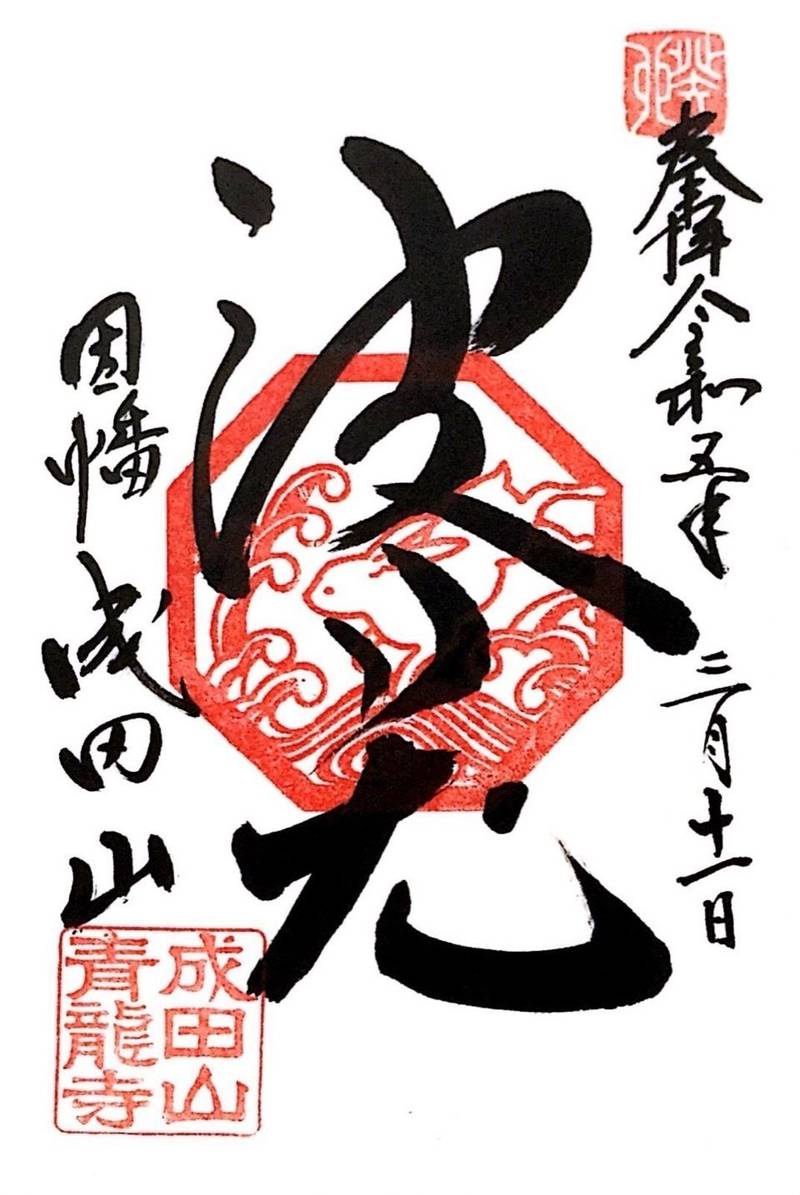 奉拝 令和五年 三月十一日
波
因幡 成田山
成田山
青龍寺